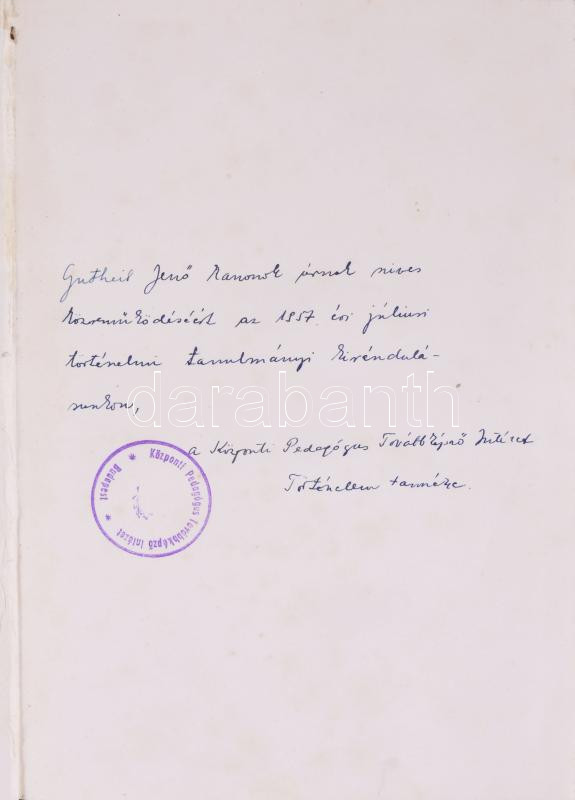 Gutheil Jenő kanonok úrnak szives
közreműködéséért az 1957. évi júliusi
történelmi tanulmányi kirándulá-
sunkon,
darabanth
a Központi Pedagógus Továbbképző Intézet
Történelem tanszéke.
* Központi Pedagógus Továbbképző Intézet * Budapest